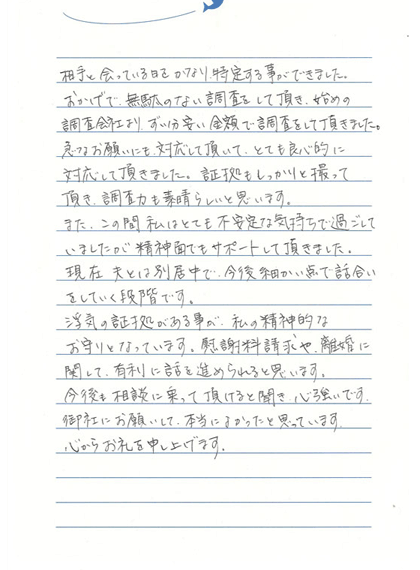 相手と会っている日をかなり特定する事ができました。
おかげで、無駄のない調査をして頂き、始めの
調査会社より、ずい分安い金額で調査をして頂きました。
急なお願いにも対応して頂いて、とても良心的に
対応して頂きました。証拠もしっかりと撮って
頂き、調査力も素晴らしいと思います。
また、この間私はとても不安定な気持ちで過ごして
いましたが精神面でもサポートして頂きました。
現在 夫とは別居中で、今後細かい点で話合い
をしていく段階です。
浮気の証拠がある事が、私の精神的な
お守りとなっています。慰謝料請求や、離婚に
関して、有利に話を進められると思います。
今後も相談に乗って頂けると聞き、心強いです。
御社にお願いして、本当によかったと思っています。
心からお礼を申し上げます。